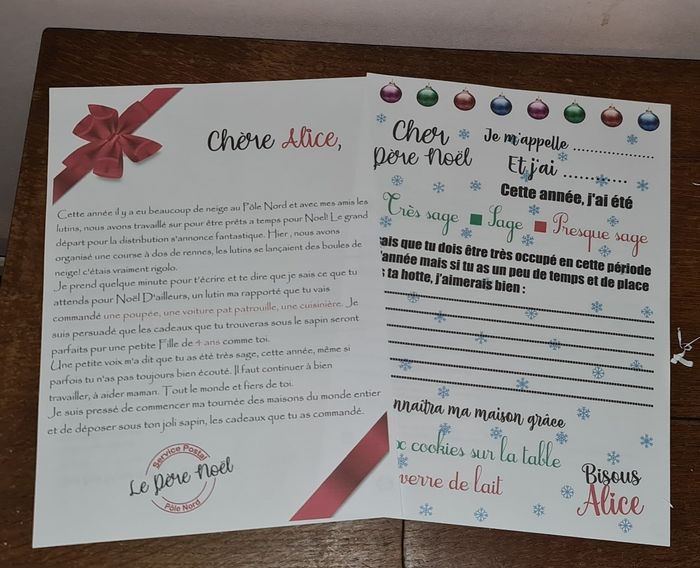 Chère Alice,
Cette année il y a eu beaucoup de neige au Pôle Nord et avec mes amis les
lutins, nous avons travaillé sur pour être prêts a temps pour Noël! Le grand
départ pour la distribution s'annonce fantastique. Hier , nous avons
organisé une course à dos de rennes, les lutins se lançaient des boules de
neige! c'étais vraiment rigolo.
Je prend quelque minute pour t'écrire et te dire que je sais ce que tu
attends pour Noël D'ailleurs, un lutin ma rapporté que tu vais
commandé une poupée, une voiture pat patrouille, une cuisinière. Je
suis persuadé que les cadeaux que tu trouveras sous le sapin seront
parfaits pur une petite Fille de 4 ans comme toi.
Une petite voix m'a dit que tu as été très sage, cette année, même si
parfois tu n'as pas toujours bien écouté. Il faut continuer à bien
travailler, à aider maman. Tout le monde et fiers de toi.
Je suis pressé de commencer ma tournée des maisons du monde entier
et de déposer sous ton joli sapin, les cadeaux que tu as commandé.
Service Postal
Le Père Noël
Pôle Nord
Cher
Père Noël
Je m'appelle ..................
Et j'ai ............
Cette année, j'ai été
Très sage Sage Presque sage
sais que tu dois être très occupé en cette période
l'année mais si tu as un peu de temps et de place
s ta hotte, j'aimerais bien :
nnaîtra ma maison grâce
x cookies sur la table
verre de lait
Bisous
Alice